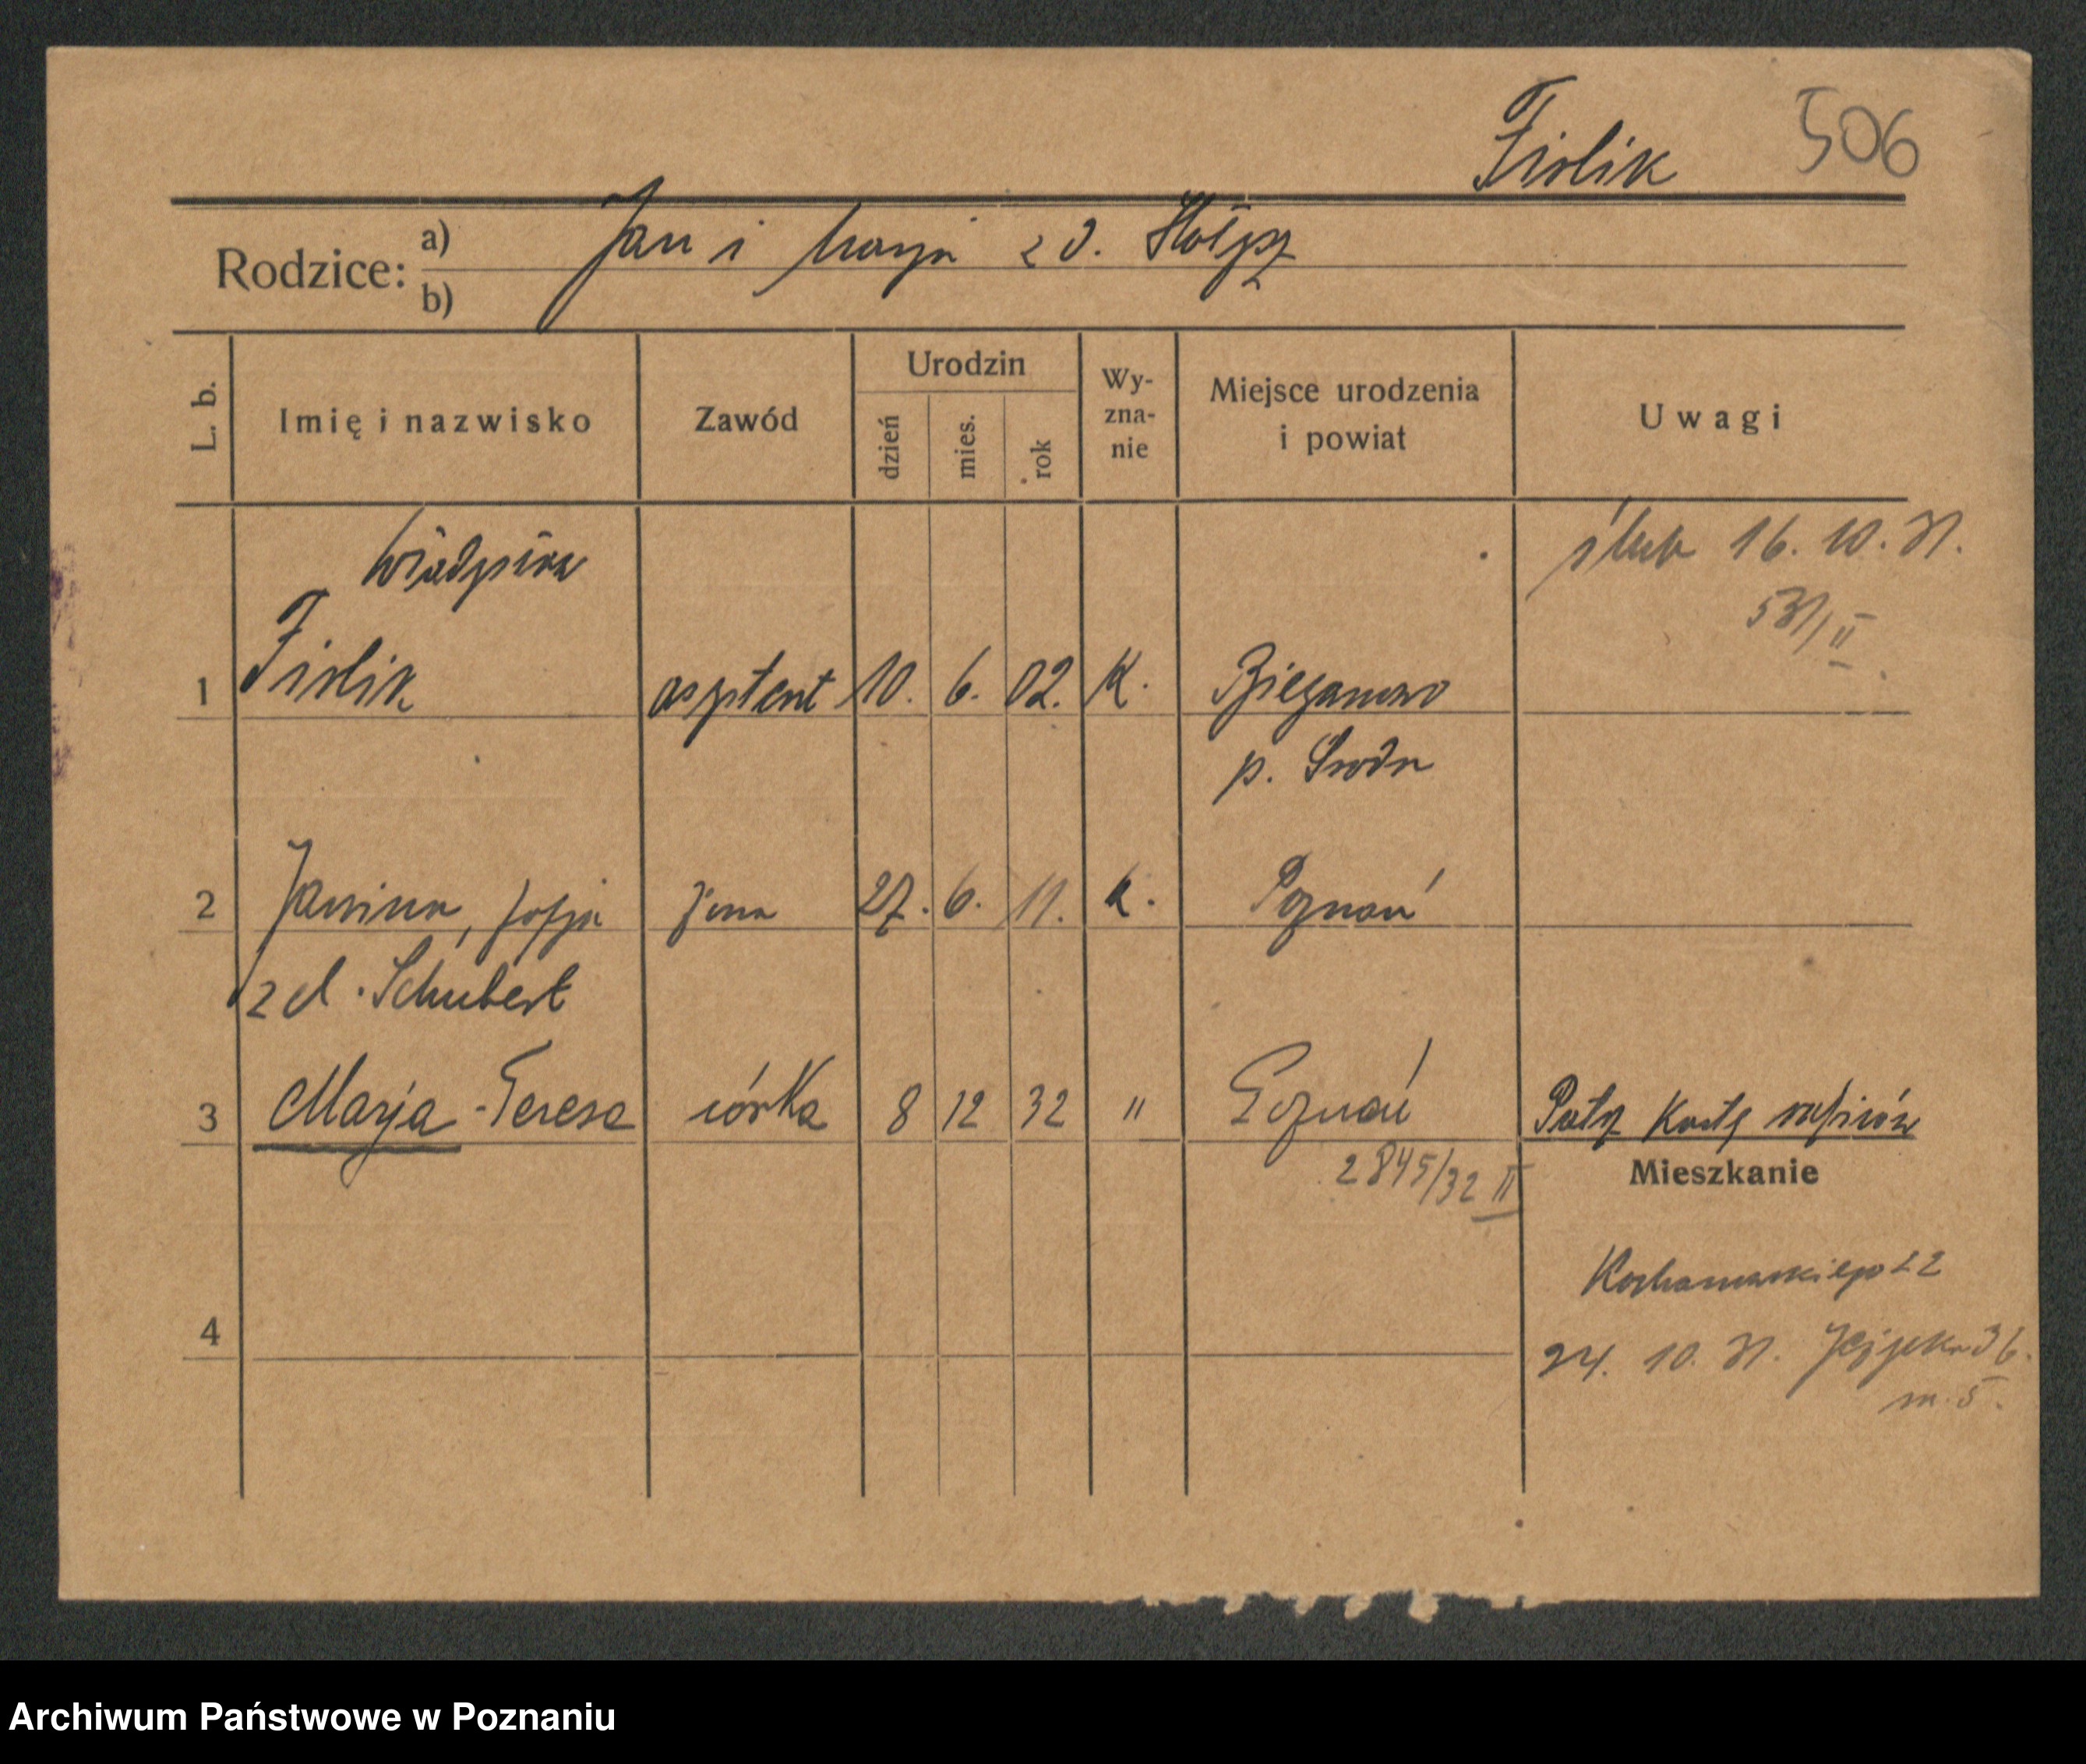 Fislik 506
Rodzice: a) Jan i Marja z d.
b)
L. b. Imię i nazwisko Zawód Urodzin dzień mies. rok Wy-zna-nie Miejsce urodzenia i powiat Uwagi
ślub 16. 10. 31.
531/II
1 Fislik asystent 10. 6. 02. K. Bieganowo
p. Środa
2 Janina, Zofja żona 27. 6. 11. k. Poznań
z d. Schubert
3 Marja-Teresa córka 8 12 32 " Poznań Patrz Kartę
2845/32 II
Mieszkanie
Kochanowskiego 22
4
24. 10. 31. 36.
m. 5.
Archiwum Państwowe w Poznaniu